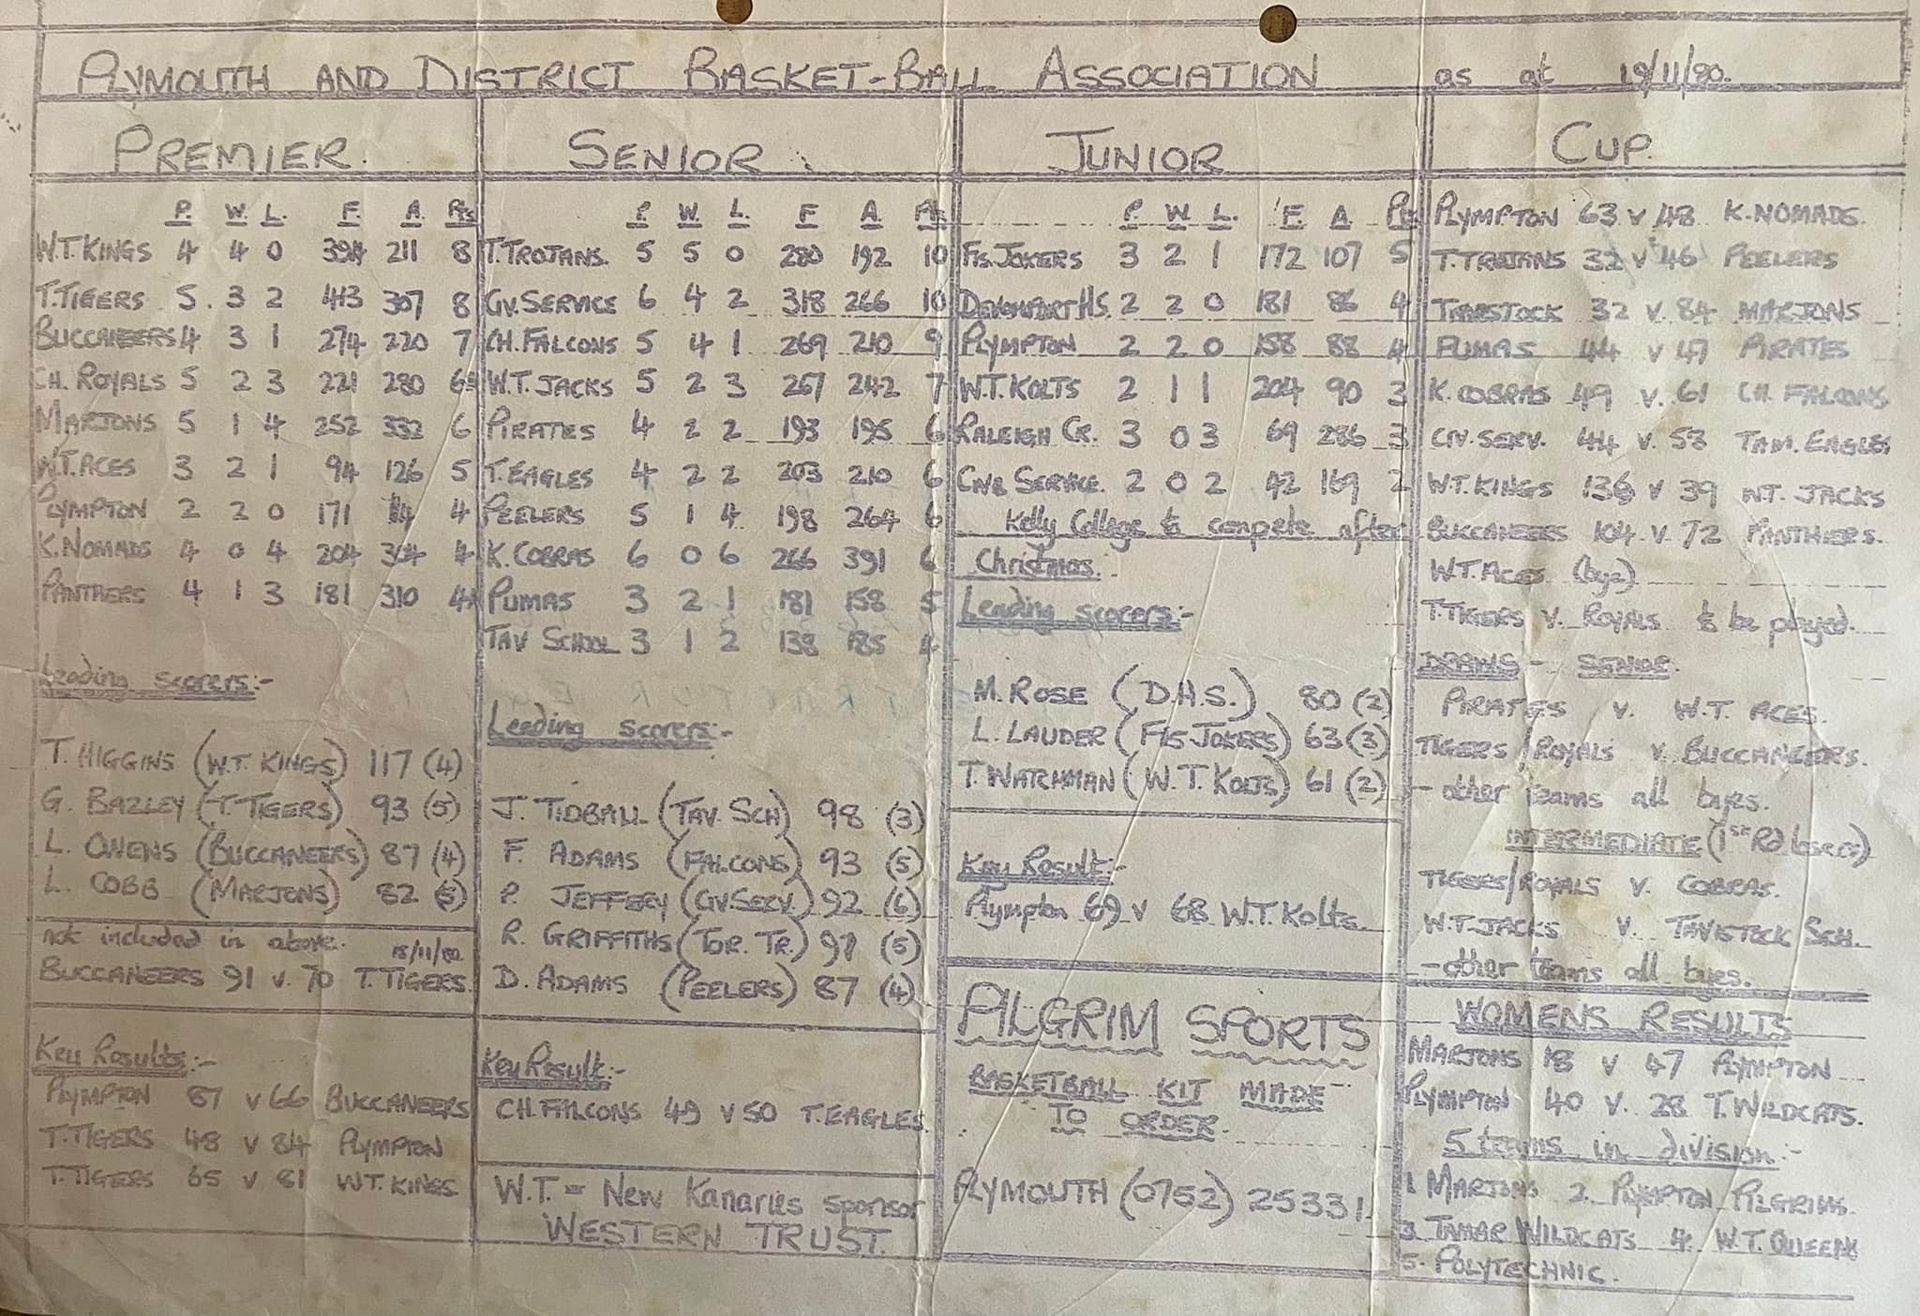 PLYMOUTH AND DISTRICT BASKET-BALL ASSOCIATION as at 19/11/80.
PREMIER.
P. W. L. F. A. Pts
W.T. KINGS 4 4 0 394 211 8
T. TIGERS 5 3 2 413 307 8
BUCCANEERS 4 3 1 274 220 7
CH. ROYALS 5 2 3 221 280 6
MARJONS 5 1 4 252 332 6
W.T. ACES 3 2 1 94 126 5
PLYMPTON 2 2 0 171 114 4
K. NOMADS 4 0 4 204 304 4
PANTHERS 4 1 3 181 310 4
Leading scorers:-
T. HIGGINS (W.T. KINGS) 117 (4)
G. BAZLEY (T. TIGERS) 93 (5)
L. OWENS (BUCCANEERS) 87 (4)
L. COBB (MARJONS) 82 (5)
not included in above. 18/11/80
BUCCANEERS 91 v. 70 T. TIGERS.
Key Results:-
PLYMPTON 87 v 66 BUCCANEERS
T. TIGERS 48 v 84 PLYMPTON
T. TIGERS 65 v 81 W.T. KINGS
SENIOR
P W. L. F A. Pts
T. TROJANS. 5 5 0 280 192 10
GV. SERVICE 6 4 2 318 266 10
CH. FALCONS 5 4 1 269 210 9
W.T. JACKS 5 2 3 267 242 7
PIRATES 4 2 2 193 195 6
T. EAGLES 4 2 2 203 210 6
PEELERS 5 1 4 198 264 6
K. COBRAS 6 0 6 266 391 6
PUMAS 3 2 1 181 158 5
TAV SCHOOL 3 1 2 138 185 4
Leading scorers:-
J. TIDBALL (TAV. SCH) 98 (3)
F. ADAMS (FALCONS) 93 (5)
P. JEFFERY (GV. SERV.) 92 (6)
R. GRIFFITHS (TOR. TR.) 91 (5)
D. ADAMS (PEELERS) 87 (4)
Key Result:-
CH. FALCONS 49 v 50 T. EAGLES.
W.T. = New Kanaries sponsor
WESTERN TRUST.
JUNIOR
P. W. L. F. A Pts
Fls. JOKERS 3 2 1 172 107 5
DEVONPORT H.S. 2 2 0 181 86 4
PLYMPTON 2 2 0 158 88 4
W.T. KOLTS 2 1 1 204 90 3
RALEIGH GR. 3 0 3 69 286 3
CIVIL SERVICE. 2 0 2 42 169 2
Kelly College to compete after
Christmas.
Leading scorers:-
M. ROSE (D.H.S.) 80 (2)
L. LAUDER (Fls JOKERS) 63 (3)
T. WATCHMAN (W.T. KOLTS) 61 (2)
Key Result:-
Plympton 69 v 68 W.T. Kolts.
PILGRIM SPORTS
BASKETBALL KIT MADE
TO ORDER.
PLYMOUTH (0752) 25331.
CUP.
PLYMPTON 63 v 48 K. NOMADS.
T. TROJANS 32 v 46 PEELERS
TAVISTOCK 32 v. 84 MARJONS
PUMAS 44 v 47 PIRATES
K. COBRAS 49 v. 61 CH. FALCONS
CIV. SERV. 44 v. 58 TAM. EAGLES
W.T. KINGS 136 v 39 W.T. JACKS
BUCCANEERS 104 v. 72 PANTHERS.
W.T. ACES (bye)
T. TIGERS v. ROYALS to be played.
DRAWS - SENIOR.
PIRATES v. W.T. ACES.
TIGERS/ROYALS v. BUCCANEERS.
- other teams all byes.
INTERMEDIATE (1st Rd losers)
TIGERS/ROYALS v. COBRAS.
W.T. JACKS v. TAVISTOCK SCH.
- other teams all byes.
WOMENS RESULTS
MARJONS 18 v 47 PLYMPTON
PLYMPTON 40 v. 28 T. WILDCATS.
5 teams in division:-
1. MARJONS 2. PLYMPTON PILGRIMS.
3. TAMAR WILDCATS 4. W.T. QUEENS
5. POLYTECHNIC.